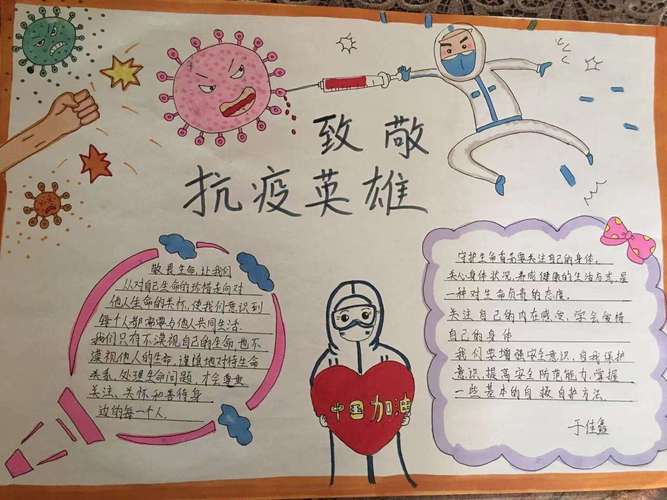 致敬
抗疫英雄
敬畏生命,让我们
从对自己生命的珍惜走向对
他人生命的关怀,使我们意识到
每个人都需要与他人共同生活.
我们只有不漠视自己的生命也不
漠视他人的生命,谨慎地对待生命
关系,处理生命问题,才会
关注、关怀和善待身
边的每一个人.
中国加油
守护生命首先要关注自己的身体.
关心身体状况,养成健康的生活方式,是
一种对生命负责的态度.
关注自己的内在感受,学会
自己的身体
我们要增强安全意识,自我保护
意识,提高安全防范能力,掌握
一些基本的自救自护方法.
于佳鑫